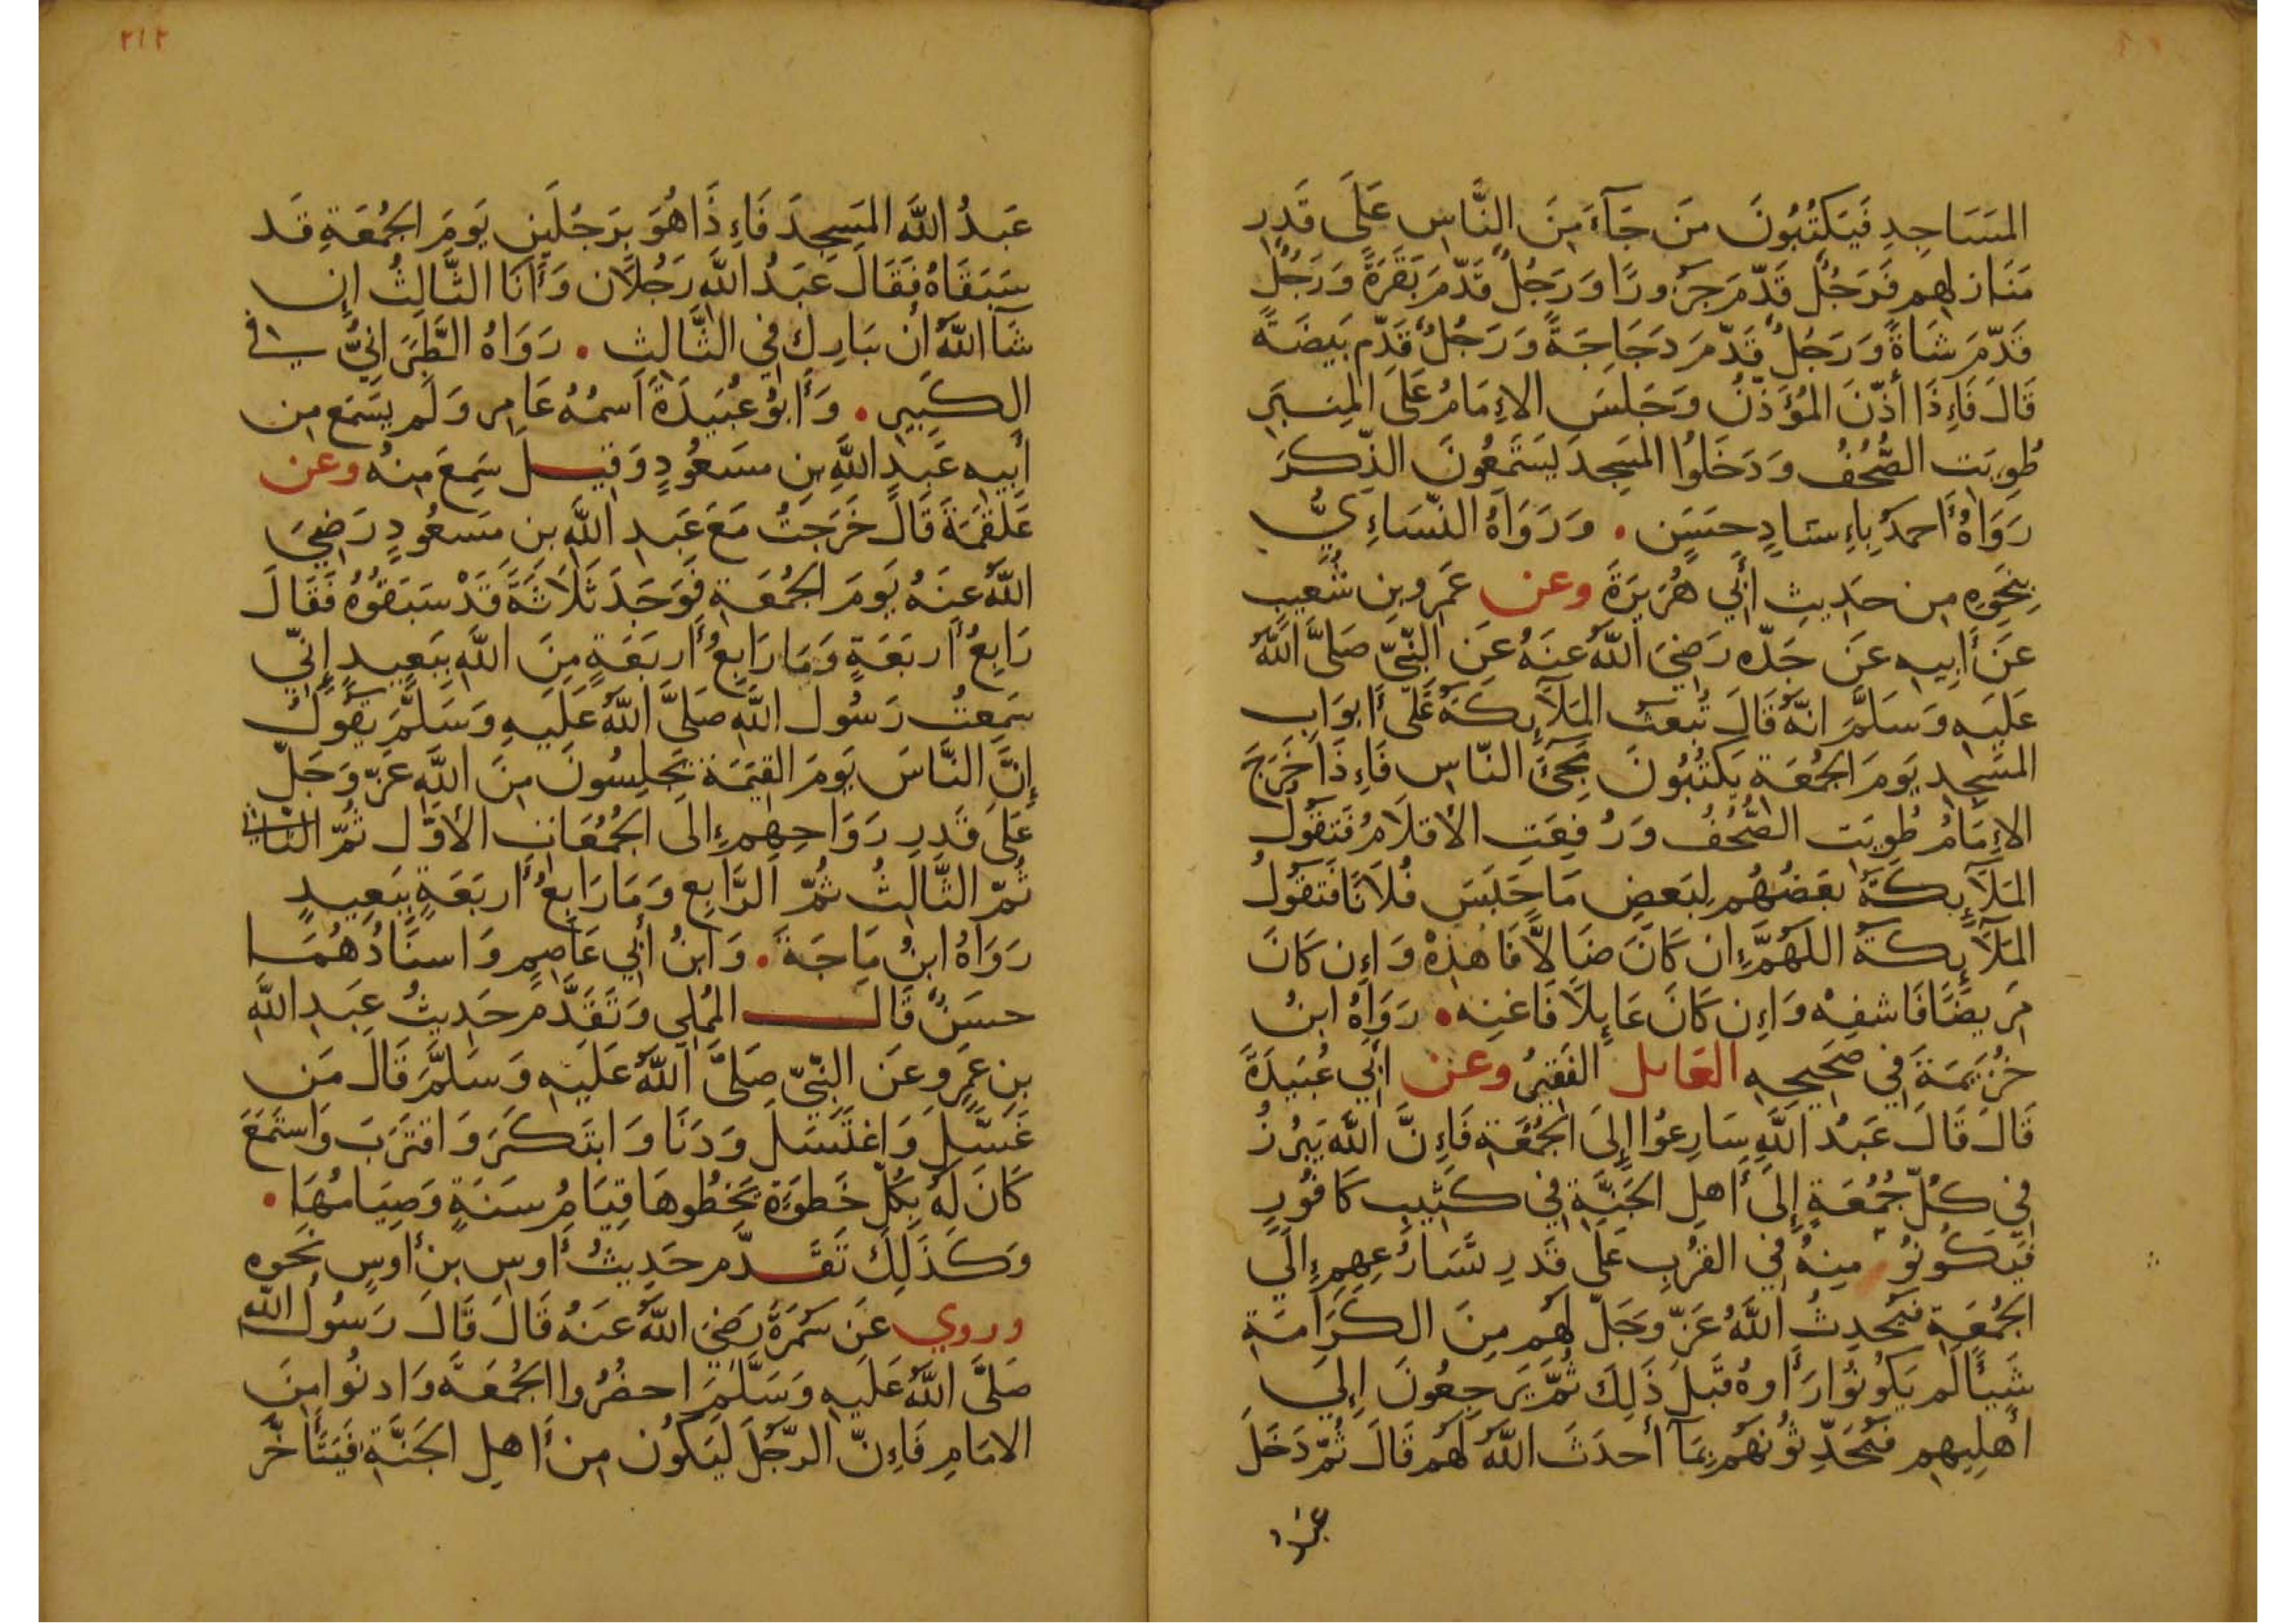 المَسَاجِدِ فَيَكْتُبُونَ مَن جَآءَ مِنَ النَّاسِ عَلَى قَدرِ
مَنَازِلهِم فَرَجُلٌ قَدّمَ جَزُورًا وَرَجُلٌ قَدّمَ بَقَرَةً وَرَجُلٌ
قَدّمَ شَاةً وَرَجُلٌ قَدّمَ دَجَاجَةً وَرَجُلٌ قَدّم بَيضَةً
قَالَ فَاءِذَا أَذّنَ المُؤَذّنُ وَجَلَسَ الاءِمَامُ عَلَى المِنبَرِ
طُوِيَت الصُّحُفُ وَدَخَلُوا المَسجِدَ يَستَمِعُونَ الذِّكرَ
رَوَاهُ أَحمَدُ بِاءِسنَادٍ حَسَنٍ . وَرَوَاهُ النّسَاءِيُّ
بِنَحوِهِ مِن حَدِيثِ أَبِي هُرَيرَةَ وعن عَمرِو بنِ شُعَيبٍ
عَن أَبِيهِ عَن جَدّه رَضِيَ اللَّهُ عَنهُ عَنِ النّبِيّ صَلَّى اللَّهُ
عَلَيهِ وَسَلَّمَ انّهُ قَالَ تُبعَثُ المَلَآيِكَةُ عَلَى أَبوَابِ
المَسجِدِ يَومَ الجُمُعَةِ يَكتُبُونَ مَجِيَ النّاسِ فَاءِذَا خَرَجَ
الاءِمَامُ طُوِيَت الصُّحُفُ وَرُفِعَتِ الأَقلَامُ فَتَقُولُ
المَلَآيِكَةُ بَعضُهُم لِبَعضٍ مَا حَبَسَ فُلَانًا فَتَقُولُ
المَلَآيِكَةُ اللَّهُمَّ اءِن كَانَ ضَالاًّ فَاهدِهْ وَاءِن كَانَ
مَرِيضًا فَاشفِهْ وَاءِن كَانَ عَايِلًا فَاغنِه . رَوَاهُ ابنُ
خُزَيمَةَ فِي صَحِيحِهِ العَايل الفَقِيرُ وعن أَبِي عُبَيدَةَ
قَالَ قَالَ عَبدُ اللَّهِ سَارِعُوا إِلَى الجُمُعَةِ فَاءِنَّ اللَّهَ يَبرُزُ
فِي كُلّ جُمُعَةٍ إِلَى أَهلِ الجَنَّةِ فِي كَثِيبِ كَافُورٍ
فَيَكُونُو مِنهُ فِي القُربِ عَلَى قَدرِ تَسَارُعِهِم إِلَى
الجُمُعَةِ فَيُحدِثُ اللَّهُ عَزّ وَجَلّ لَهُم مِنَ الكَرَامَةِ
شَيـًٔا لَم يَكُونُوا رَأَوهُ قَبلَ ذَلِكَ ثُمَّ يَرجِعُونَ إِلَى
أَهلِيهِم فَيُحَدِّثُونَهُم بِمَآ أَحدَثَ اللَّهُ لَهُم قَالَ ثُمّ دَخَلَ
٢١٢
عَبدُ اللَّهِ المَسجِدَ فَاءِذَا هُوَ بِرَجُلَينِ يَومَ الجُمُعَةِ قَد
سَبَقَاهُ فَقَالَ عَبدُ اللَّهِ رَجُلَانِ وَأَنَا الثَّالِثُ إِن
شَا اللَّهُ أَن يبَارِك فِي الثَّالِثِ . رَوَاهُ الطَّبَرَانِيُّ فِي
الكَبِيرِ . وَأَبُو عُبَيدَةَ اسمُهُ عَامِر وَلَم يَسمَع مِن
أَبِيهِ عَبدِ اللَّهِ بنِ مسعُودٍ وَقِيلَ سَمِعَ مِنهُ وعن
عَلقَمَةَ قَالَ خَرَجتُ مَعَ عَبدِ اللَّهِ بن مَسعُودٍ رَضِيَ
اللَّهُ عَنهُ يَومَ الجُمُعَةِ فَوَجَدَ ثَلَاثَةً قَدْ سَبَقُوهُ فَقَالَ
رَابِعُ أَربَعَةٍ وَمَا رَابِعُ أَربَعَةٍ مِنَ اللَّهِ بِبَعِيدٍ إِنّي
سَمِعتُ رَسُول اللَّهِ صَلَّى اللَّهُ عَلَيهِ وَسَلَّمَ يَقُولُ
إِنَّ النَّاسَ يَومَ القِيَمَةِ يَجلِسُونَ مِنَ اللَّهِ عَزّ وَجَلّ
عَلَى قَدرِ رَوَاحِهِم إِلَى الجُمُعَاتِ الأَوَّل ثُمّ الثَّانِي
ثُمّ الثَّالِثُ ثُمّ الرَّابِع وَمَا رَابِعُ أَربَعَةٍ بِبَعِيدٍ
رَوَاهُ ابنُ مَاجَةَ . وَابنُ أَبِي عَاصِمٍ وَاسنَادُهُمَا
حسَنٌ قَالَ المُملِي وَتَقَدَّم حَدِيثُ عَبدِ اللَّهِ
بنِ عَمرٍو عَن النّبِيّ صَلَّى اللَّهُ عَلَيهِ وَسَلَّمَ قَالَ مَن
غَسَّلَ وَاغتَسَلَ وَدَنَا وَابتَكَرَ وَاقتَرَبَ وَاستَمَعَ
كَانَ لَهُ بِكُلّ خَطوَةٍ يَخطُوهَا قِيَامُ سَنَةٍ وَصِيَامُهَا .
وَكَذَلِكَ تَقَدّم حَدِيثُ أَوسِ بنِ أَوسٍ نَحوه
وروي عَن سَمُرَةَ رَضِيَ اللَّهُ عَنهُ قَالَ قَالَ رَسُولُ اللَّهِ
صَلَّى اللَّهُ عَلَيهِ وَسَلَّمَ احضُرُوا الجُمُعَةَ وَادنُوا مِنَ
الامَامِ فَاءِنّ الرَّجُلَ لَيَكُون مِن أَهلِ الجَنَّةِ فَيَتَأَخَّر